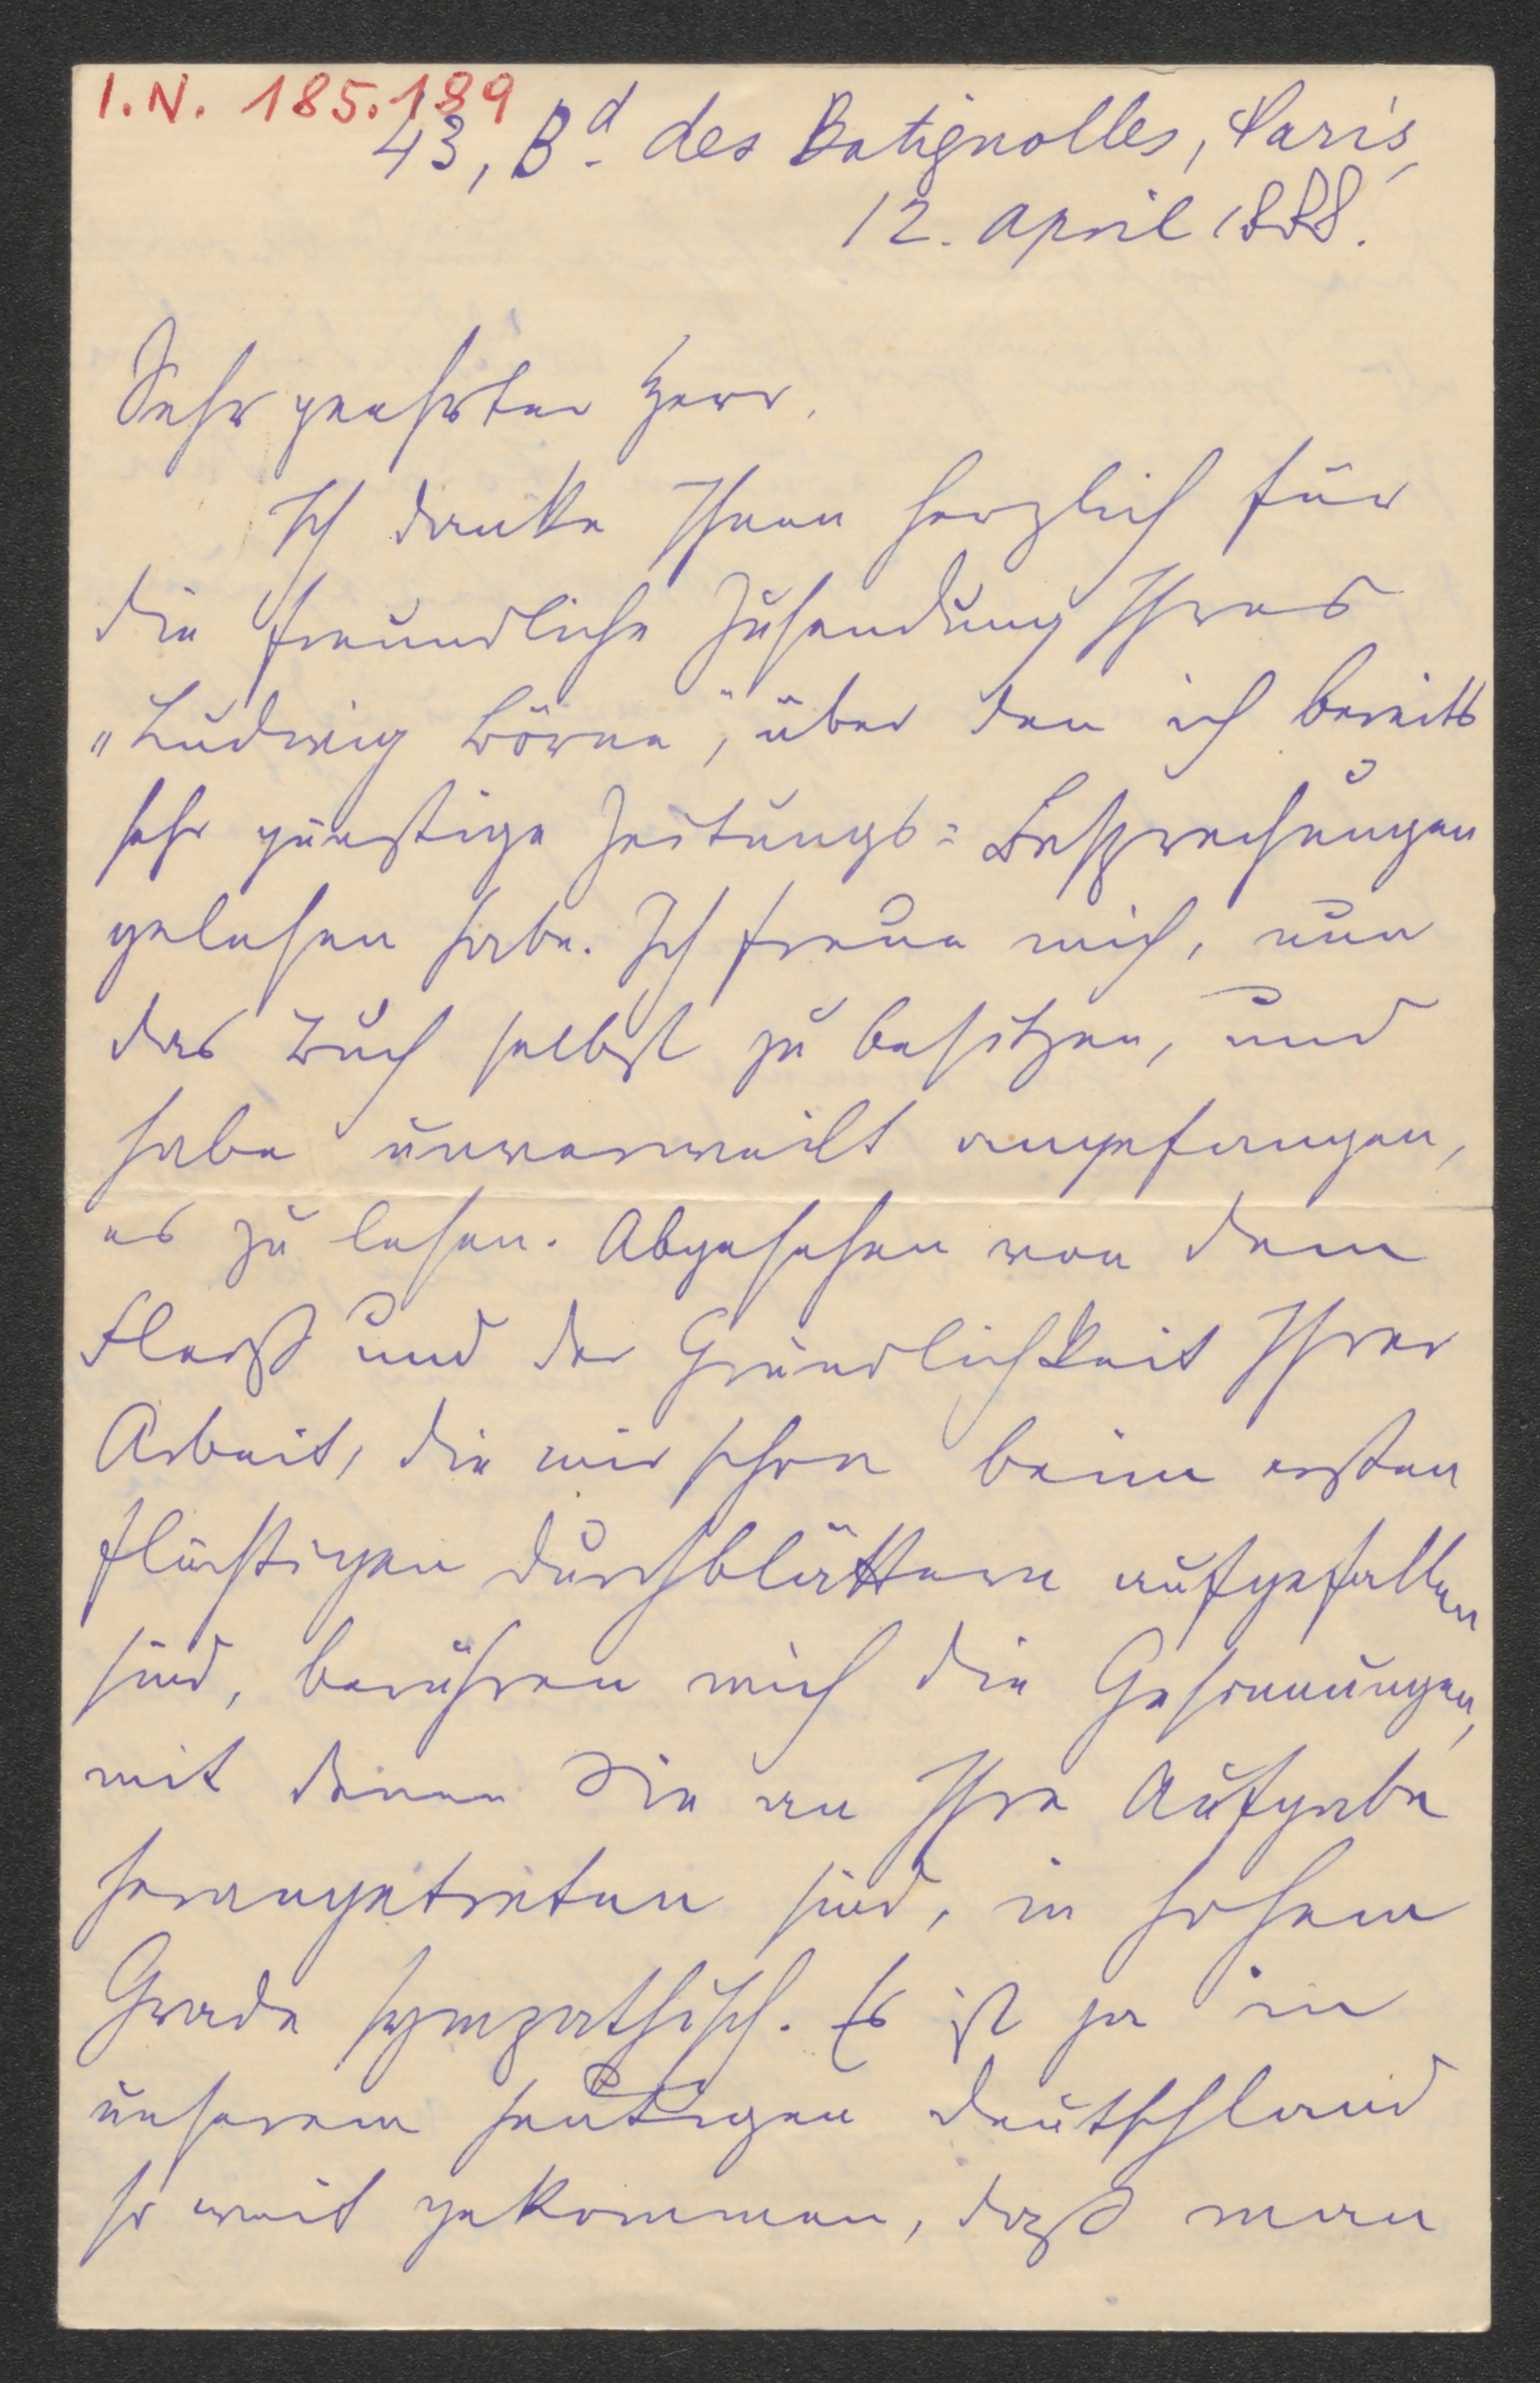 I.N. 185.189
43, Bd. des Batignolles, Paris,
12. April 1888.
Sehr geehrter Herr,
Ich danke Ihnen herzlich für
die freundliche Zusendung Ihres
„Ludwig Börne", über den ich bereits
sehr günstige Zeitungs=Besprechungen
gelesen habe. Ich freue mich, nun
das Buch selbst zu besitzen, und
habe unverweilt angefangen,
es zu lesen. Abgesehen von dem
Fleiß und der Gründlichkeit Ihrer
Arbeit, die mir schon beim ersten
flüchtigen Durchblättern aufgefallen
sind, berühren mich die Gesinnungen,
mit denen Sie an Ihre Aufgabe
herangetreten sind, in hohem
Grade sympathisch. Es ist ja in
unserem heutigen Deutschland
so weit gekommen, daß man